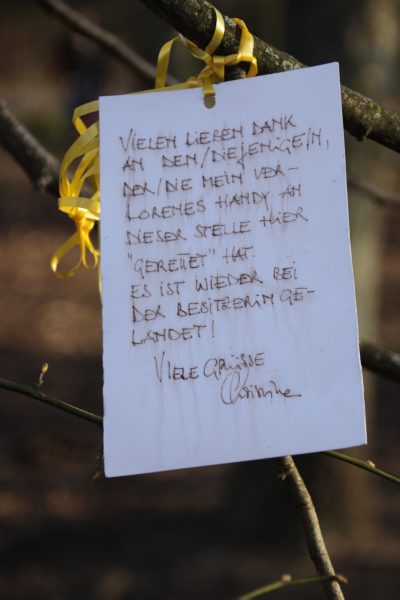 VIELEN LIEBEN DANK
AN DEN/DIEJENIGE/N,
DER/DIE MEIN VER-
LORENES HANDY AN
DIESER STELLE HIER
"GERETTET" HAT.
ES IST WIEDER BEI
DER BESITZERIN GE-
LANDET!
VIELE GRÜSSE
Christine